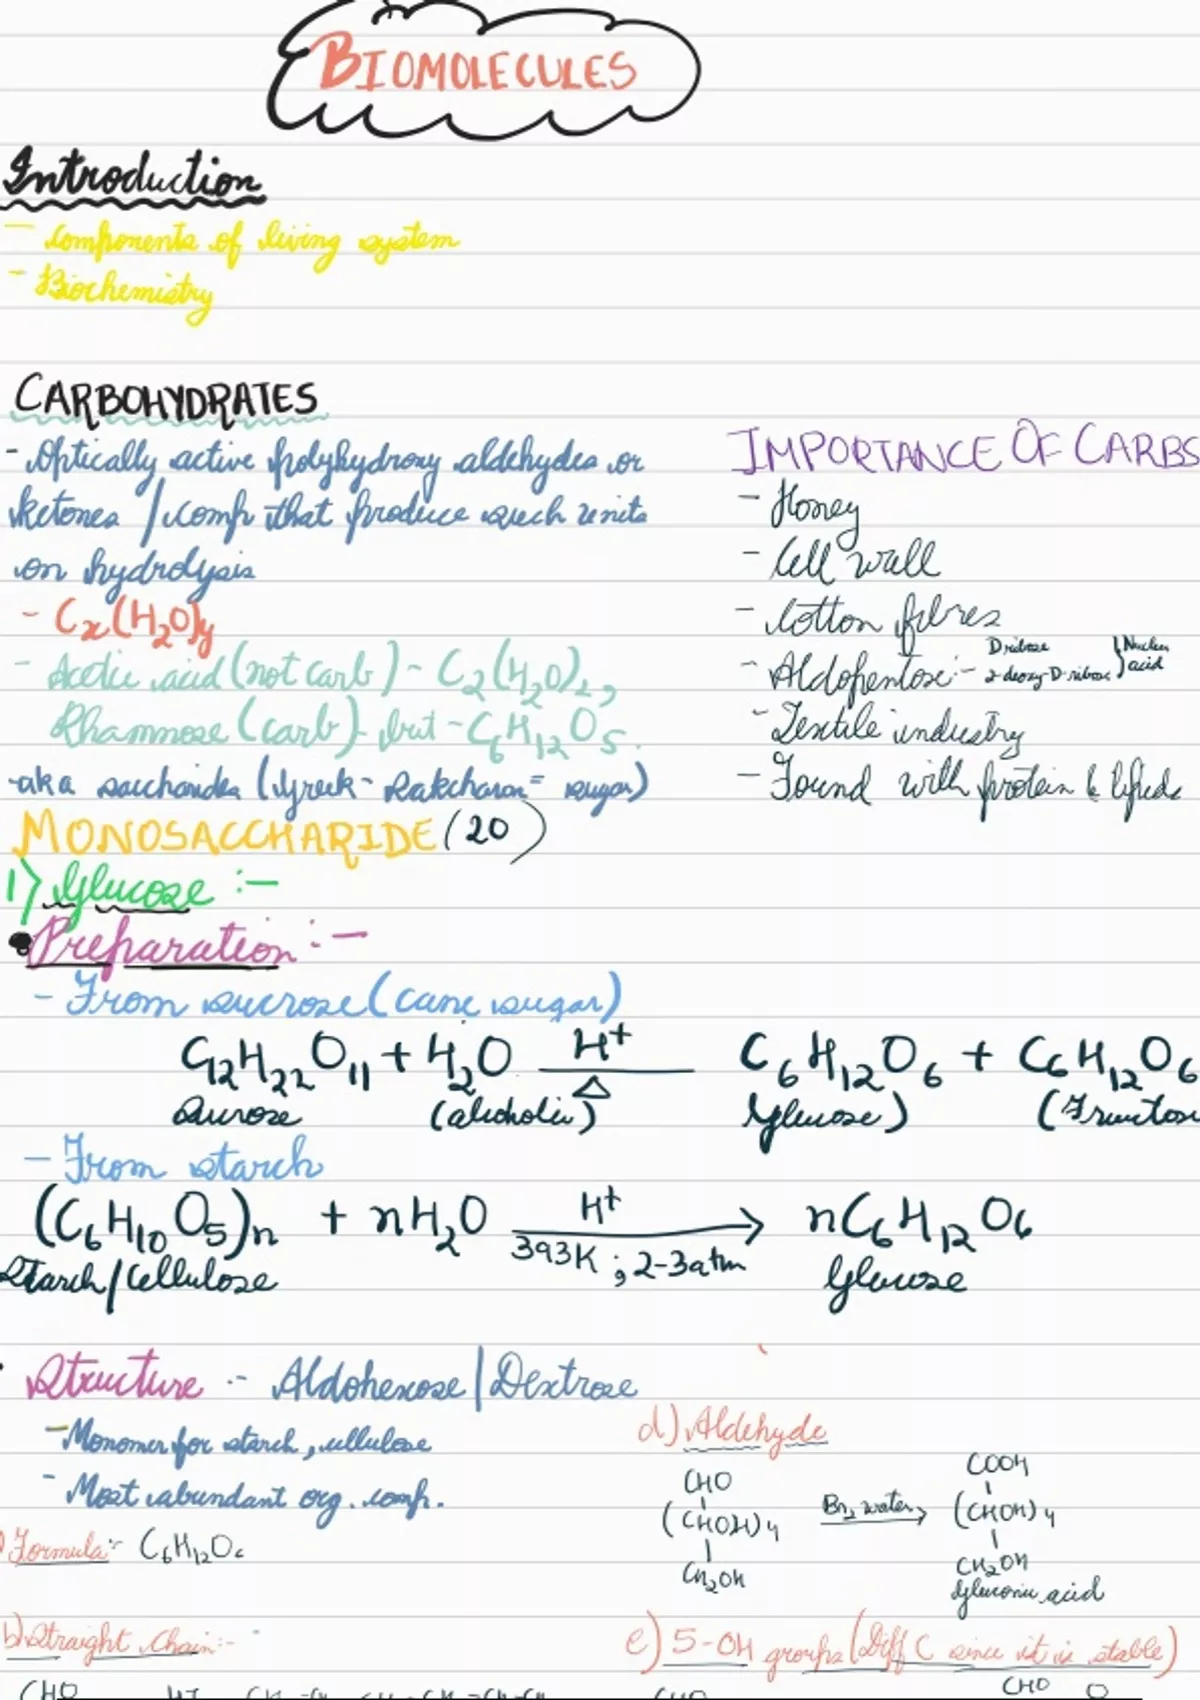 BIOMOLECULES
Introduction
- Components of living system
- Biochemistry
CARBOHYDRATES
- Optically active polyhydroxy aldehydes or
ketones / comp that produce such units
on hydrolysis
- Cx(H2O)y
- Acetic acid (not carb) - C2(H2O)2,
Rhamnose (carb) but - C6H12O5.
-aka saccharides (Greek - Sakcharon = sugar)
IMPORTANCE OF CARBS
- Honey
- Cell wall
- Cotton fibres
- Aldopentose:- D ribose
2-deoxy-D-ribose } Nucleic acid
- Textile industry
- Found with protein & lipids
MONOSACCHARIDE (20)
1) Glucose :-
• Preparation :-
- From sucrose (cane sugar)
C12H22O11 + H2O H+ Δ C6H12O6 + C6H12O6
Sucrose (alcoholic) Glucose) (Fructose
- From starch
(C6H10O5)n + nH2O H+ → nC6H12O6
393K ; 2-3atm
Starch/Cellulose Glucose
Structure :- Aldohexose / Dextrose
- Monomer for starch, cellulose
- Most abundant org. comp.
Formula:- C6H12O6
b) Straight Chain:-
d) Aldehyde
CHO COOH
(CHOH)4 Br2 water → (CHOH)4
CH2OH CH2OH
Gluconic acid
e) 5-OH groups (Diff C since it is stable)
CHO
CHO O